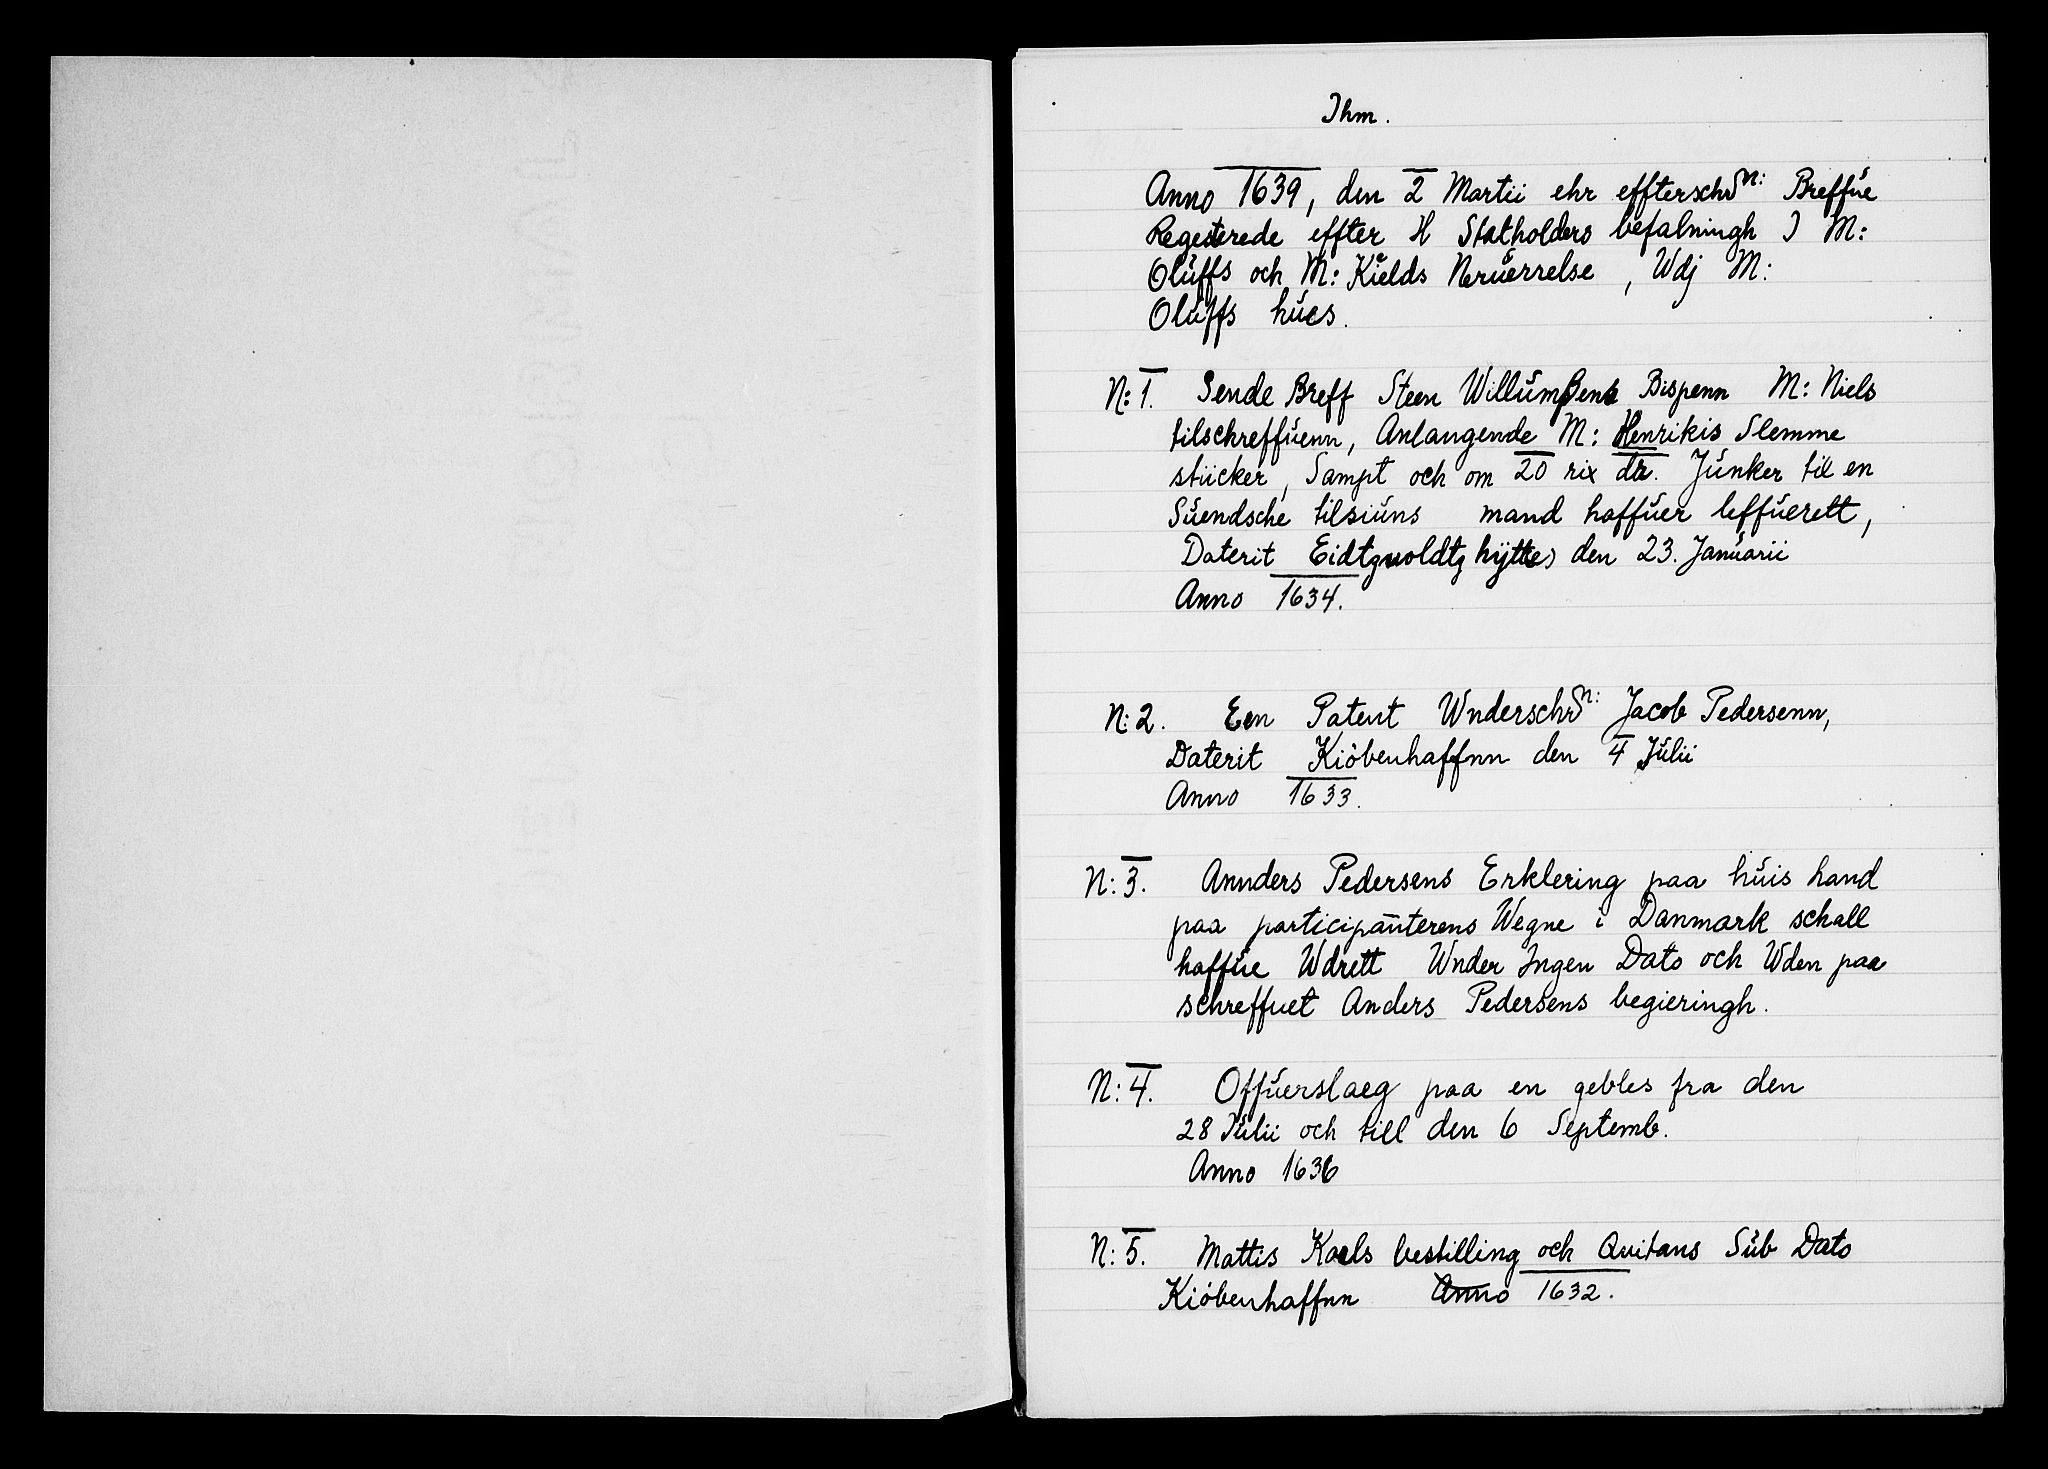 Ihm.
Anno 1639, den 2 Martii ehr effterschrn: Breffue
Registerede effter H Statholders befalningh J M:
Oluffs och M: Kields Neruerrelse, Wdj M:
Oluffs hues.
N: 1. Sende Breff Steen Willumßens Bispenn M: Niels
tilschreffuenn, Anlangende M: Henrikis Slemme
stücker, Sampt och om 20 rix dr. Junker til en
Suendsche tilsiuns mand haffuer leffuerett,
Daterit Eidtzuoldtz hÿttes den 23. Januarii
Anno 1634.
N: 2. Een Patent Wnderschrn: Jacob Pedersenn,
Daterit Kiöbenhaffnn den 4 Julii
Anno 1633.
N: 3. Annders Pedersens Erklering paa huis hand
paa participanterens Wegne i Danmark schall
haffue Wdrett Wnder Ingen Dato och Wden paa
schreffuet Anders Pedersens begieringh.
N: 4. Offuerslaeg paa en gebles fra den
28 Julii och till den 6 Septemb.
Anno 1636
N: 5. Mattis Kaels bestilling och Quitans Sub Dato
Kiöbenhaffnn Anno 1632.